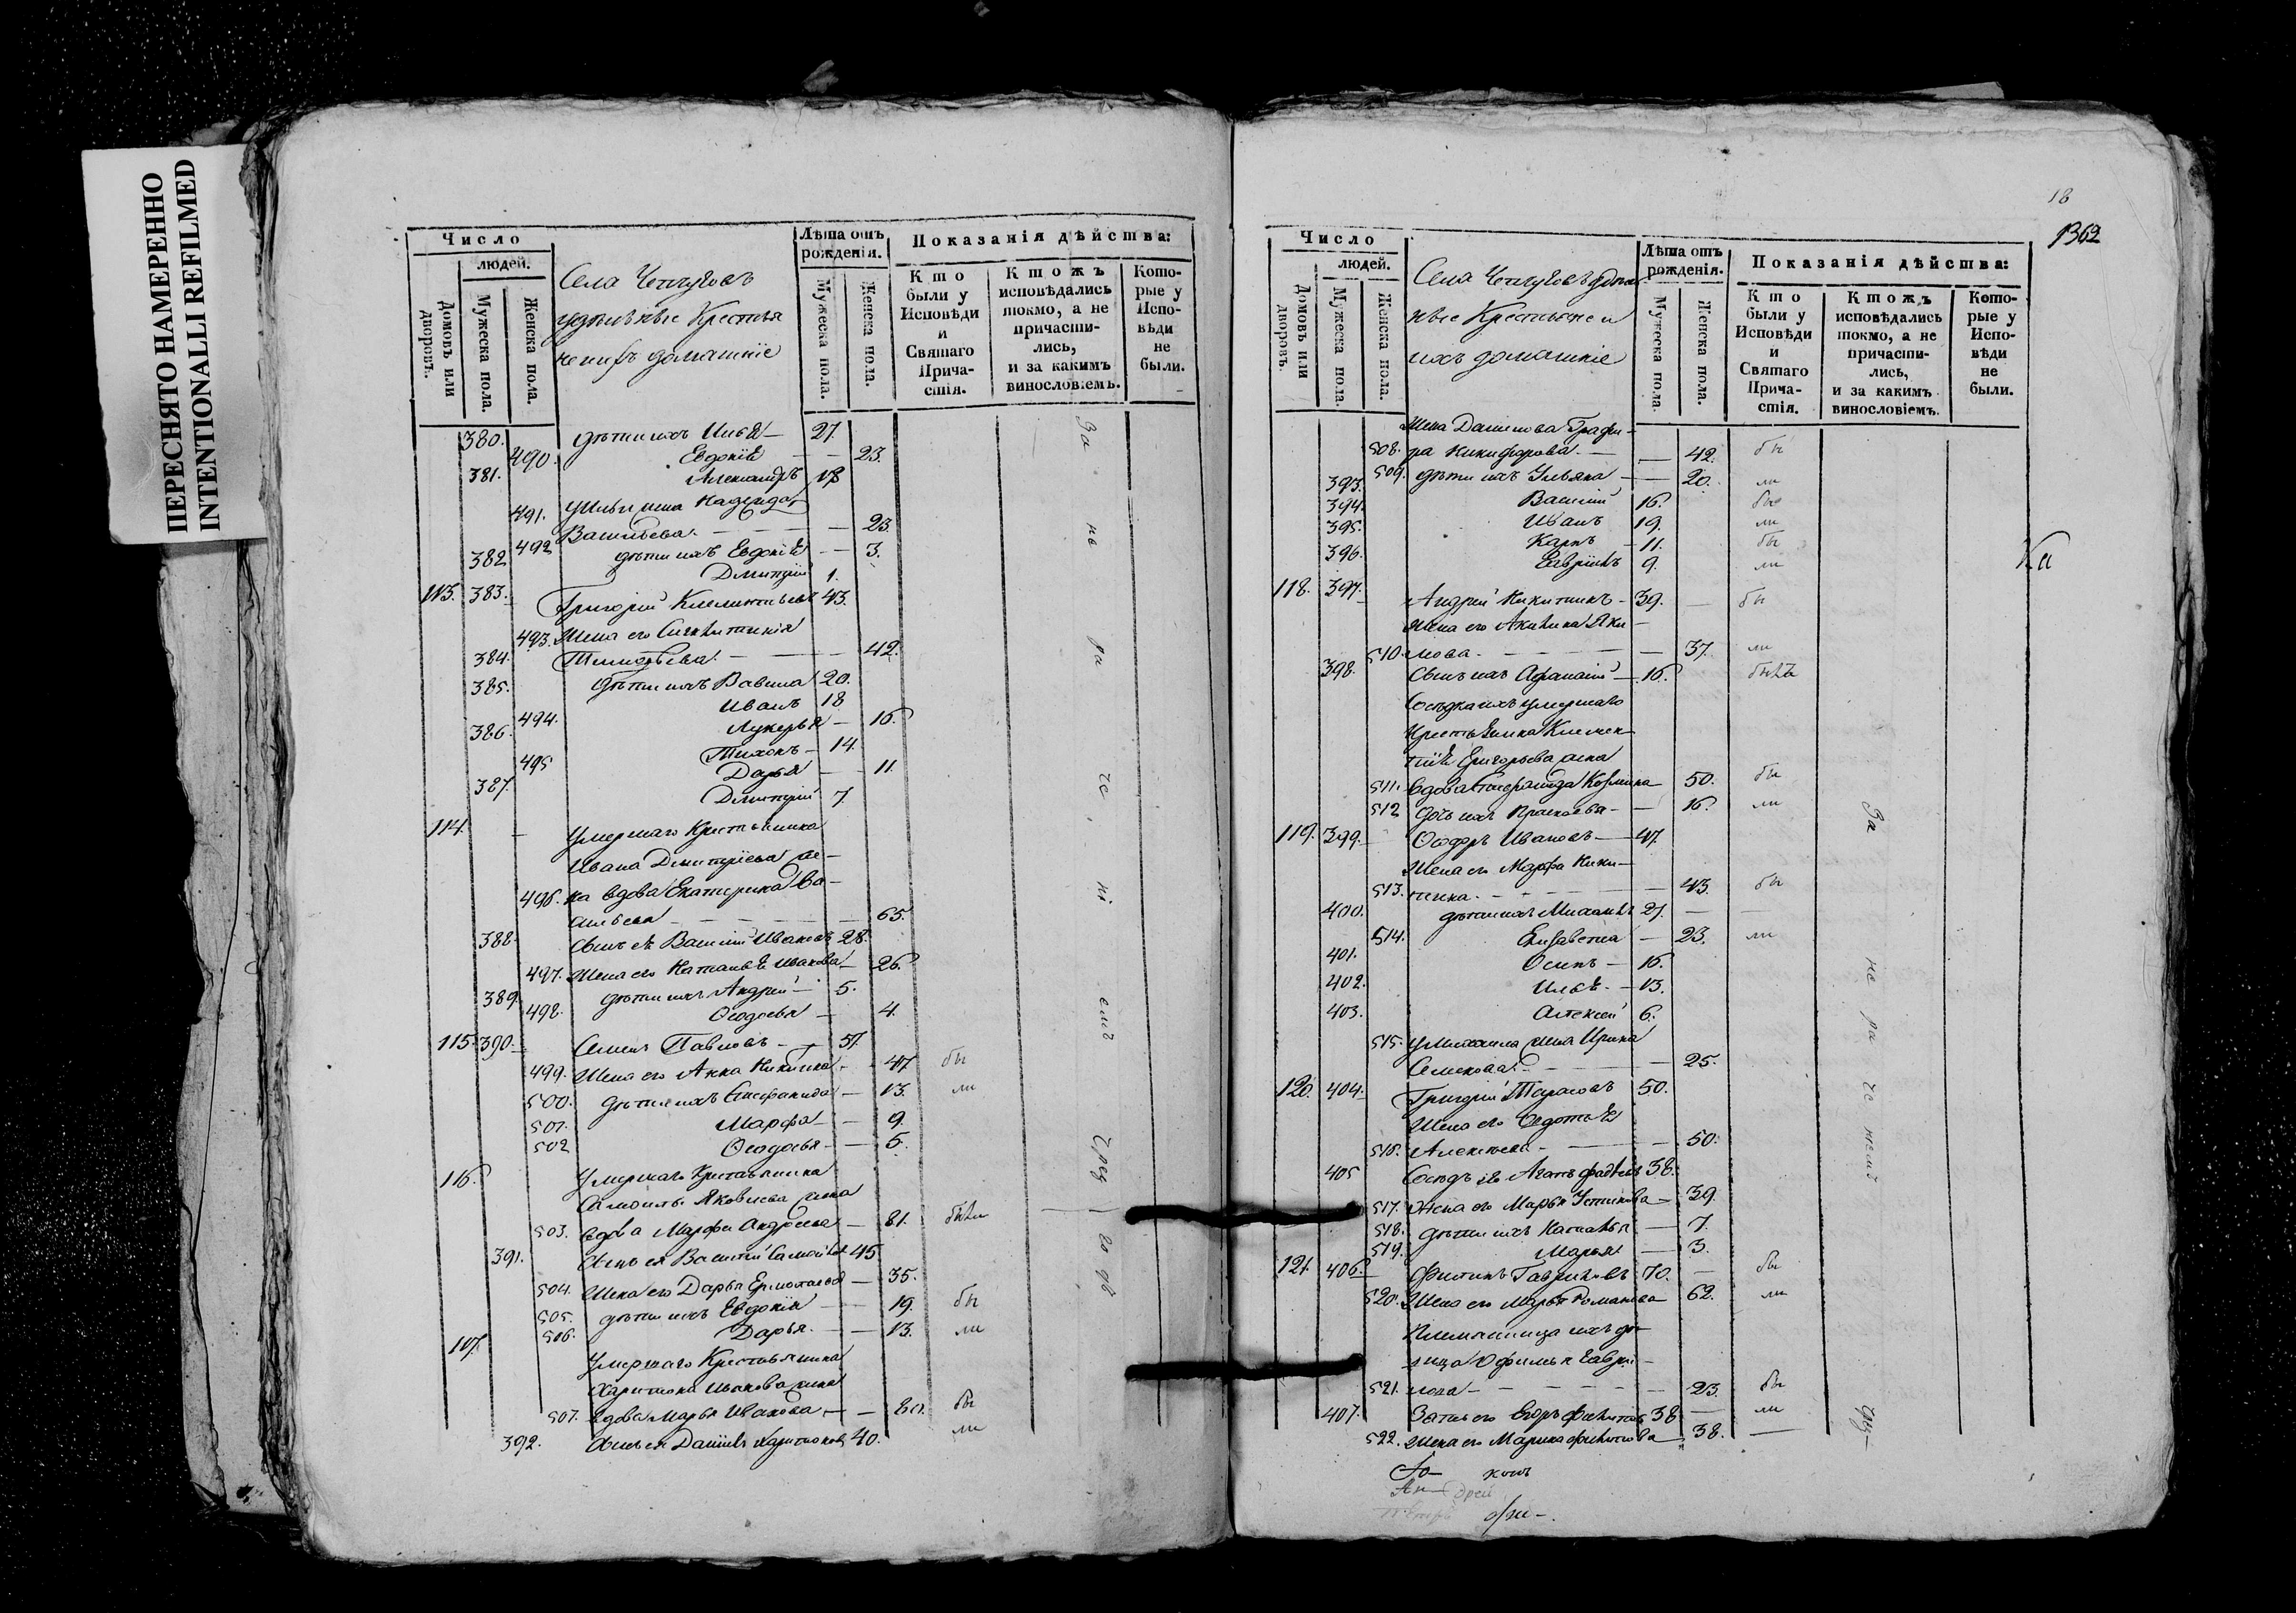 ПЕРЕСНЯТО НАМЕРЕННО
INTENTIONALLI REFILMED
Число
людей.
Домовъ или дворовъ.
Мужеска пола.
Женска пола.
Села
удѣльные Крестья
не и ихъ домашніе
Лѣта отъ рожденія.
Мужеска пола.
Женска пола.
Показанія дѣйства:
Кто были у Исповѣди и Святаго Причастія.
Ктожъ исповѣдались токмо, а не причастились, и за какимъ винословіемъ.
Которые у Исповѣди не были.
380. дѣти ихъ Илья — 27.
490. Евдокія — 23.
381. Александръ 18
491. у Ильи жена Надежда
Васильева — 23.
492 дѣти ихъ Евдокія — 3.
382 Дмитрій 1.
113. 383. Григорій Климентьевъ 43.
493. Жена его
Тимофѣева — 42.
384. дѣти ихъ Вавила 20.
385. Иванъ 18
494. Лукерья — 16.
386. Тихонъ — 14.
495 Дарья — 11.
387. Дмитрій 7.
114. — Умершаго Крестьянина
Ивана Дмитріева же-
496. на вдова Екатерина Ва-
сильева — 65.
388. Сынъ ея Василій Ивановъ 28.
497. Жена его Наталья Иванова — 26.
389. дѣти ихъ Андрей — 5.
498. Ѳедосья — 4.
115. 390. Семенъ Павловъ — 51.
499. Жена его Анна Никитина — 47 бы
500. дѣти ихъ Степанида — 13. ли
501. Марфа — 9.
502 Ѳедосья — 5.
116. Умершаго Крестьянина
Самойлы Яковлева жена
503. вдова Марфа Андреева — 81. были
391. Сынъ ея Василій Самойловъ 45.
504. Жена его Дарья Ермолаева — 35.
505. дѣти ихъ Евдокія — 19. бы
506. Дарья — 13. ли
117. Умершаго Крестьянина
Харитона Иванова жена
507. вдова Марья Иванова — 80. бы
392. Сынъ ея Даніилъ Харитоновъ 40. ли
За не ра че ні емъ
18
1362
Число
людей.
Домовъ или дворовъ.
Мужеска пола.
Женска пола.
Села
ные Крестьяне и
ихъ домашніе
Лѣта отъ рожденія.
Мужеска пола.
Женска пола.
Показанія дѣйства:
Кто были у Исповѣди и Святаго Причастія.
Ктожъ исповѣдались токмо, а не причастились, и за какимъ винословіемъ.
Которые у Исповѣди не были.
Жена Данилова Глафи-
508. ра Никифорова — 42. бы
509. дѣти ихъ Ульяна — 20. ли
393. Василій 16. бы
394. Иванъ 19. ли
395. Карпъ — 11. бы
396. Гавріилъ 9. ли
118. 397. Андрей Никитинъ — 39. — бы
Жена его Акилина Яки-
510. мова — 37. ли
398. Сынъ ихъ Афанасій — 16. были
Сосѣдка ихъ умершаго
Крестьянина Климен-
тія Григорьева жена
511. вдова Степанида Козмина — 50. бы
512 дочь ихъ Прасковья — 16. ли
119. 399. Ѳедоръ Ивановъ — 47.
Жена его Марфа Ники-
513. тина — 43. бы
400. дѣти ихъ Михаилъ 27. —
514. Елизавета — 23. ли
401. Осипъ — 16.
402. Илья — 13.
403. Алексѣй 6.
515. у Михаила жена Ирина
Семенова — 25.
120. 404. Григорій Тарасовъ 50.
Жена его Ѳедотья
516. Алексѣева — 50.
405 Сосѣдъ его 38.
517. Жена его Марья Устинова — 39.
518. дѣти ихъ Наталья — 7.
519. Марья — 3.
121. 406. Филипъ Гавриловъ 70. — бы
520. Жена его Марья Романова 62. ли
Племянница ихъ дѣ-
вица Офимья Гаври-
521. лова — 23. бы
407. Зять его Егоръ Филиповъ 38 — ли
522. Жена его Марина Филипова — 38. —
За не ра че ніемъ
Ка